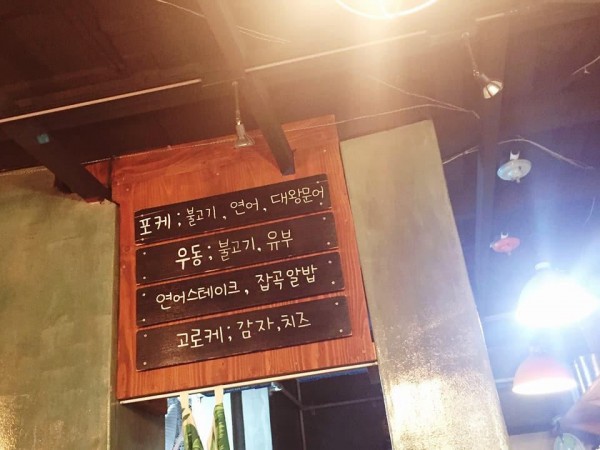 포케; 불고기, 연어, 대왕문어
우동; 불고기, 유부
연어스테이크, 잡곡알밥
고로케; 감자, 치즈